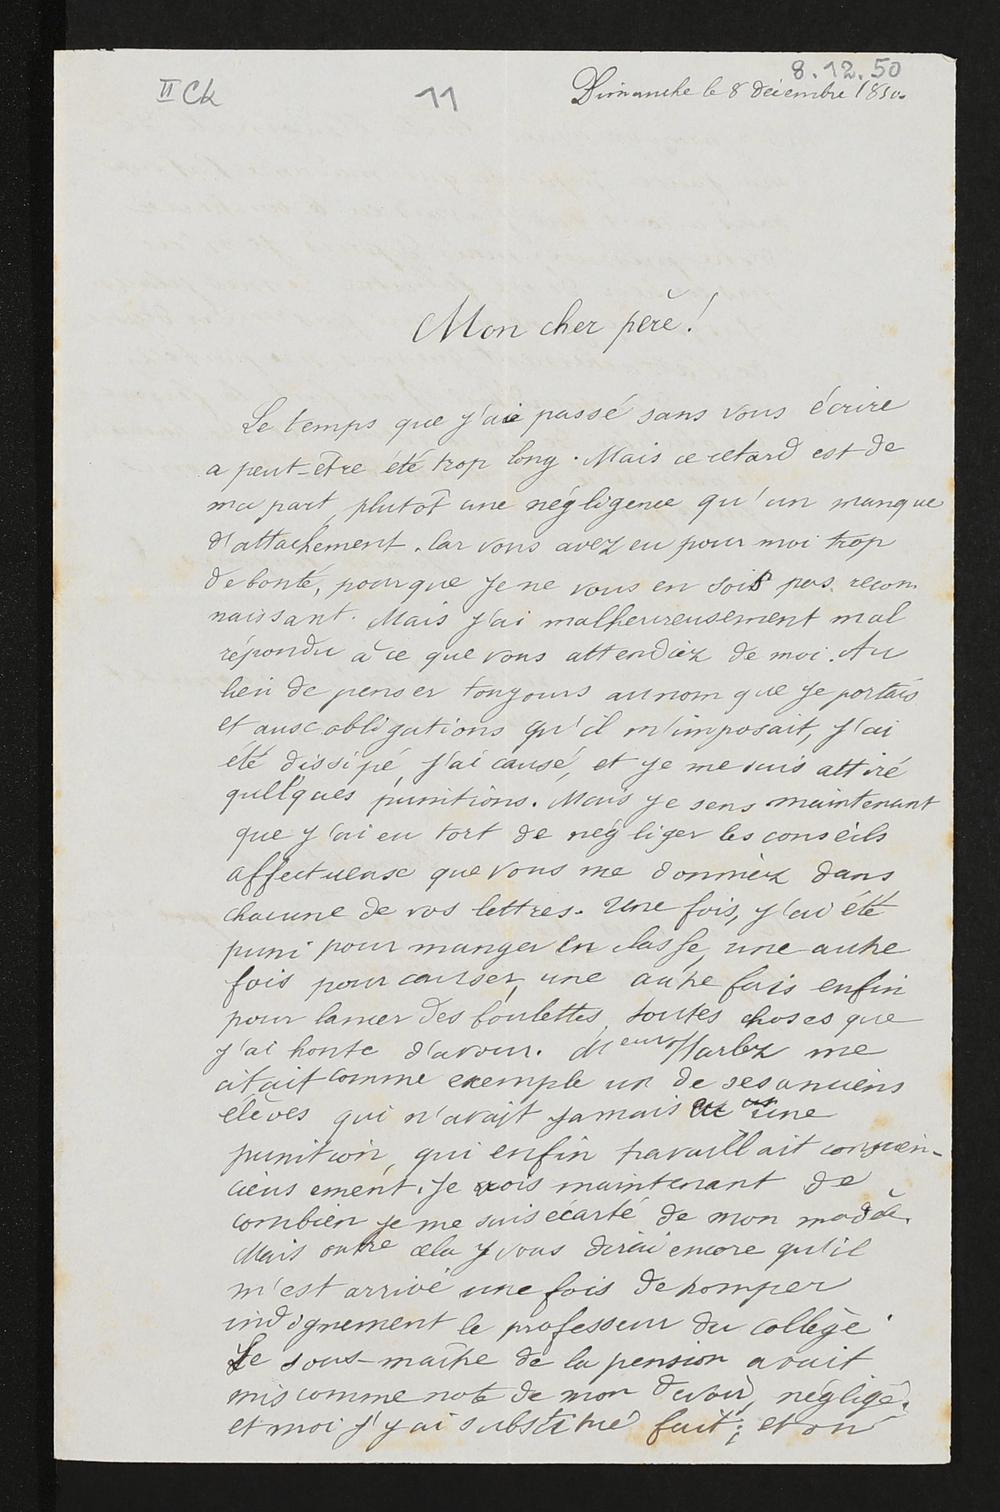 8.12.50
II Ck
11
Dimanche le 8 décembre 1850.
Mon cher père!
Le temps que j'aie passé sans vous écrire
a peut-être été trop long. Mais ce retard est de
ma part, plutôt une négligence qu'un manque
d'attachement. Car vous avez eu pour moi trop
de bonté, pour que je ne vous en sois pas recon
naissant. Mais j'ai malheureusement mal
répondu à ce que vous attendiez de moi. Au
lieu de penser toujours au nom que je portais
et aux obligations qu'il m'imposait, j'ai
été dissipé, j'ai causé, et je me suis attiré
quelques punitions. Mais je sens maintenant
que j'ai eu tort de négliger les conseils
affectueux que vous me donniez dans
chacune de vos lettres. Une fois, j'ai été
puni pour manger en classe, une autre
fois pour causer, une autre fois enfin
pour lancer des boulettes, toutes choses que
j'ai honte d'avouer. Mieur Harlez me
citait comme exemple un de ses anciens
élèves qui n'avait jamais eu une
punition, qui enfin travaillait conscien-
cieusement. Je vois maintenant de
combien je me suis écarté de mon modèle.
Mais outre cela je vous dirai encore qu'il
m'est arrivé une fois de tromper
indignement le professeur du collège.
Le sous-maître de la pension avait
mis comme note de mon devoir, négligé,
et moi j'y ai substitué fait; et on